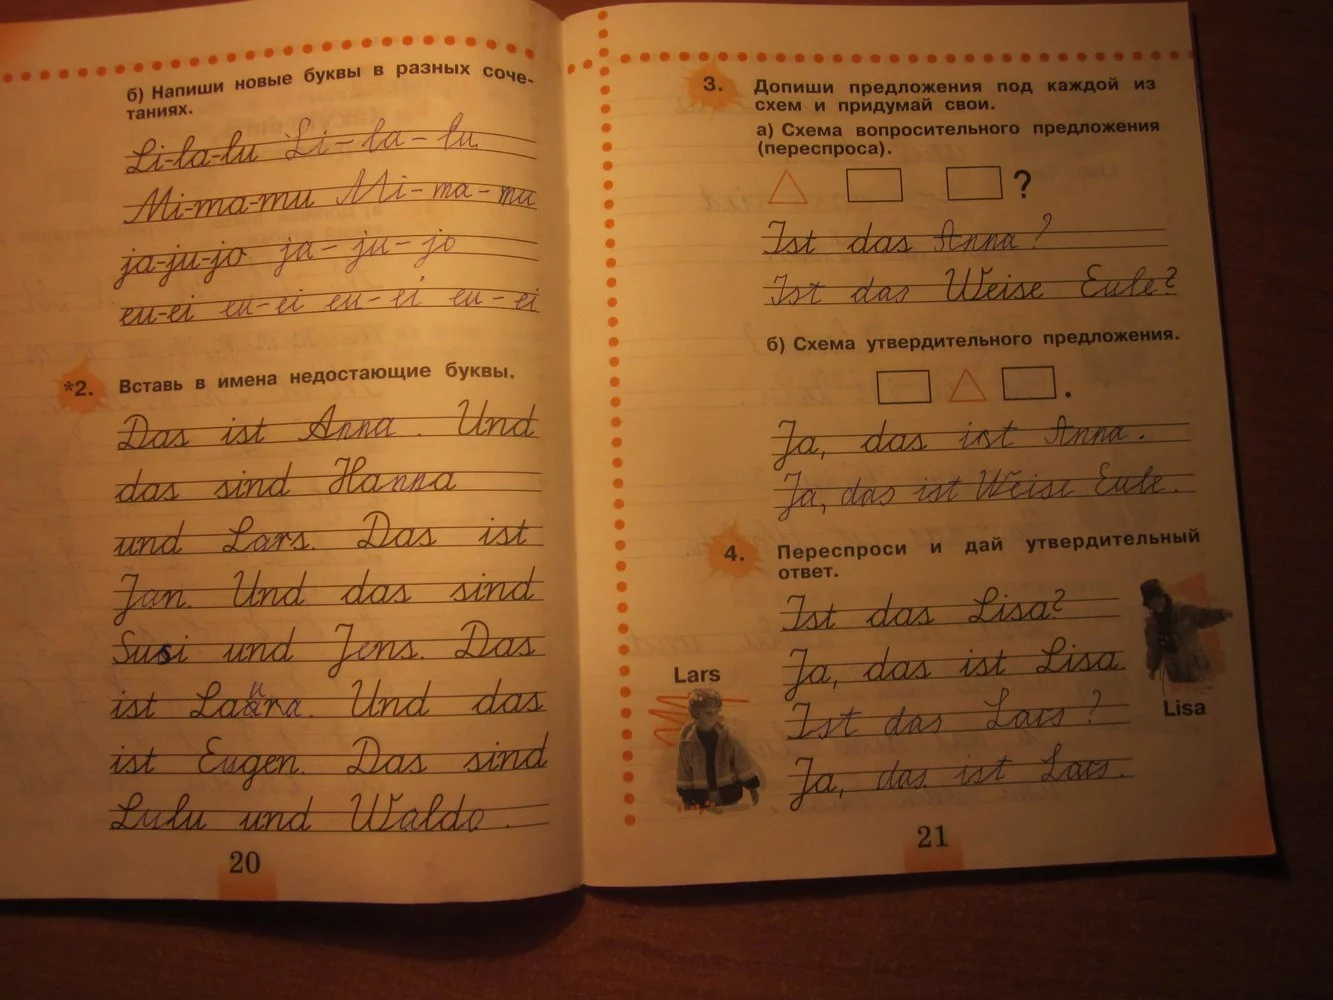 б) Напиши новые буквы в разных соче-
таниях.
Li-la-lu Li-la-lu
Mi-ma-mu Mi-ma-mu
ja-ju-jo ja-ju-jo
eu-ei eu-ei eu-ei eu-ei
*2. Вставь в имена недостающие буквы.
Das ist Anna. Und
das sind Hanna
und Lars. Das ist
Jan. Und das sind
Susi und Jens. Das
ist Laura. Und das
ist Eugen. Das sind
Lulu und Waldo.
20
3. Допиши предложения под каждой из
схем и придумай свои.
а) Схема вопросительного предложения
(переспроса).
?
Ist das Anna?
Ist das Weise Eule?
б) Схема утвердительного предложения.
.
Ja, das ist Anna.
Ja, das ist Weise Eule.
4. Переспроси и дай утвердительный
ответ.
Ist das Lisa?
Ja, das ist Lisa.
Ist das Lars?
Ja, das ist Lars.
Lars
Lisa
21